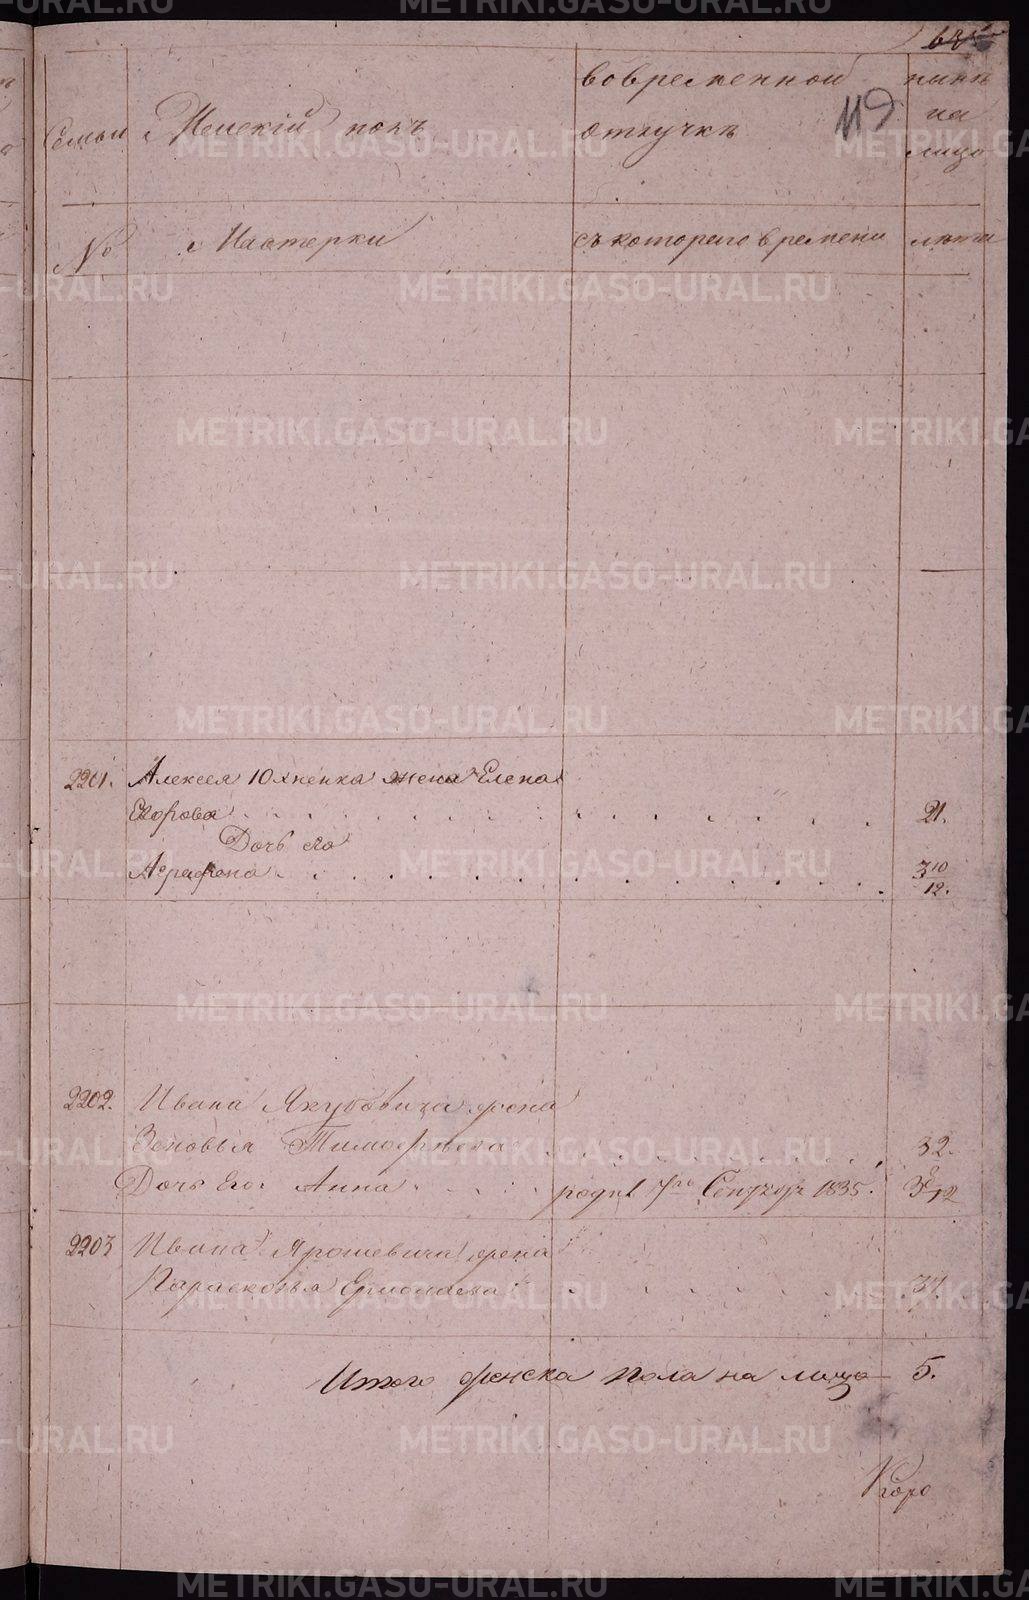 119
Семьи
Женскій полъ
во временной
отлучкѣ
нынѣ
на
лицо
№
Мастерки
съ котораго времени
лѣта
2201. Алексея Юхненка жена Елена
Егорова 21.
Дочь его
Аграфена 3 10/12.
2202. Ивана Якубовича жена
Зеновья Тимофѣева 32.
Дочь Его Анна родил 7го Сентября 1835.
2203 Ивана Ярошевича жена
Парасковья Ермолаева 37
Итого женска пола на лицо 5.
METRIKI.GASO-URAL.RU